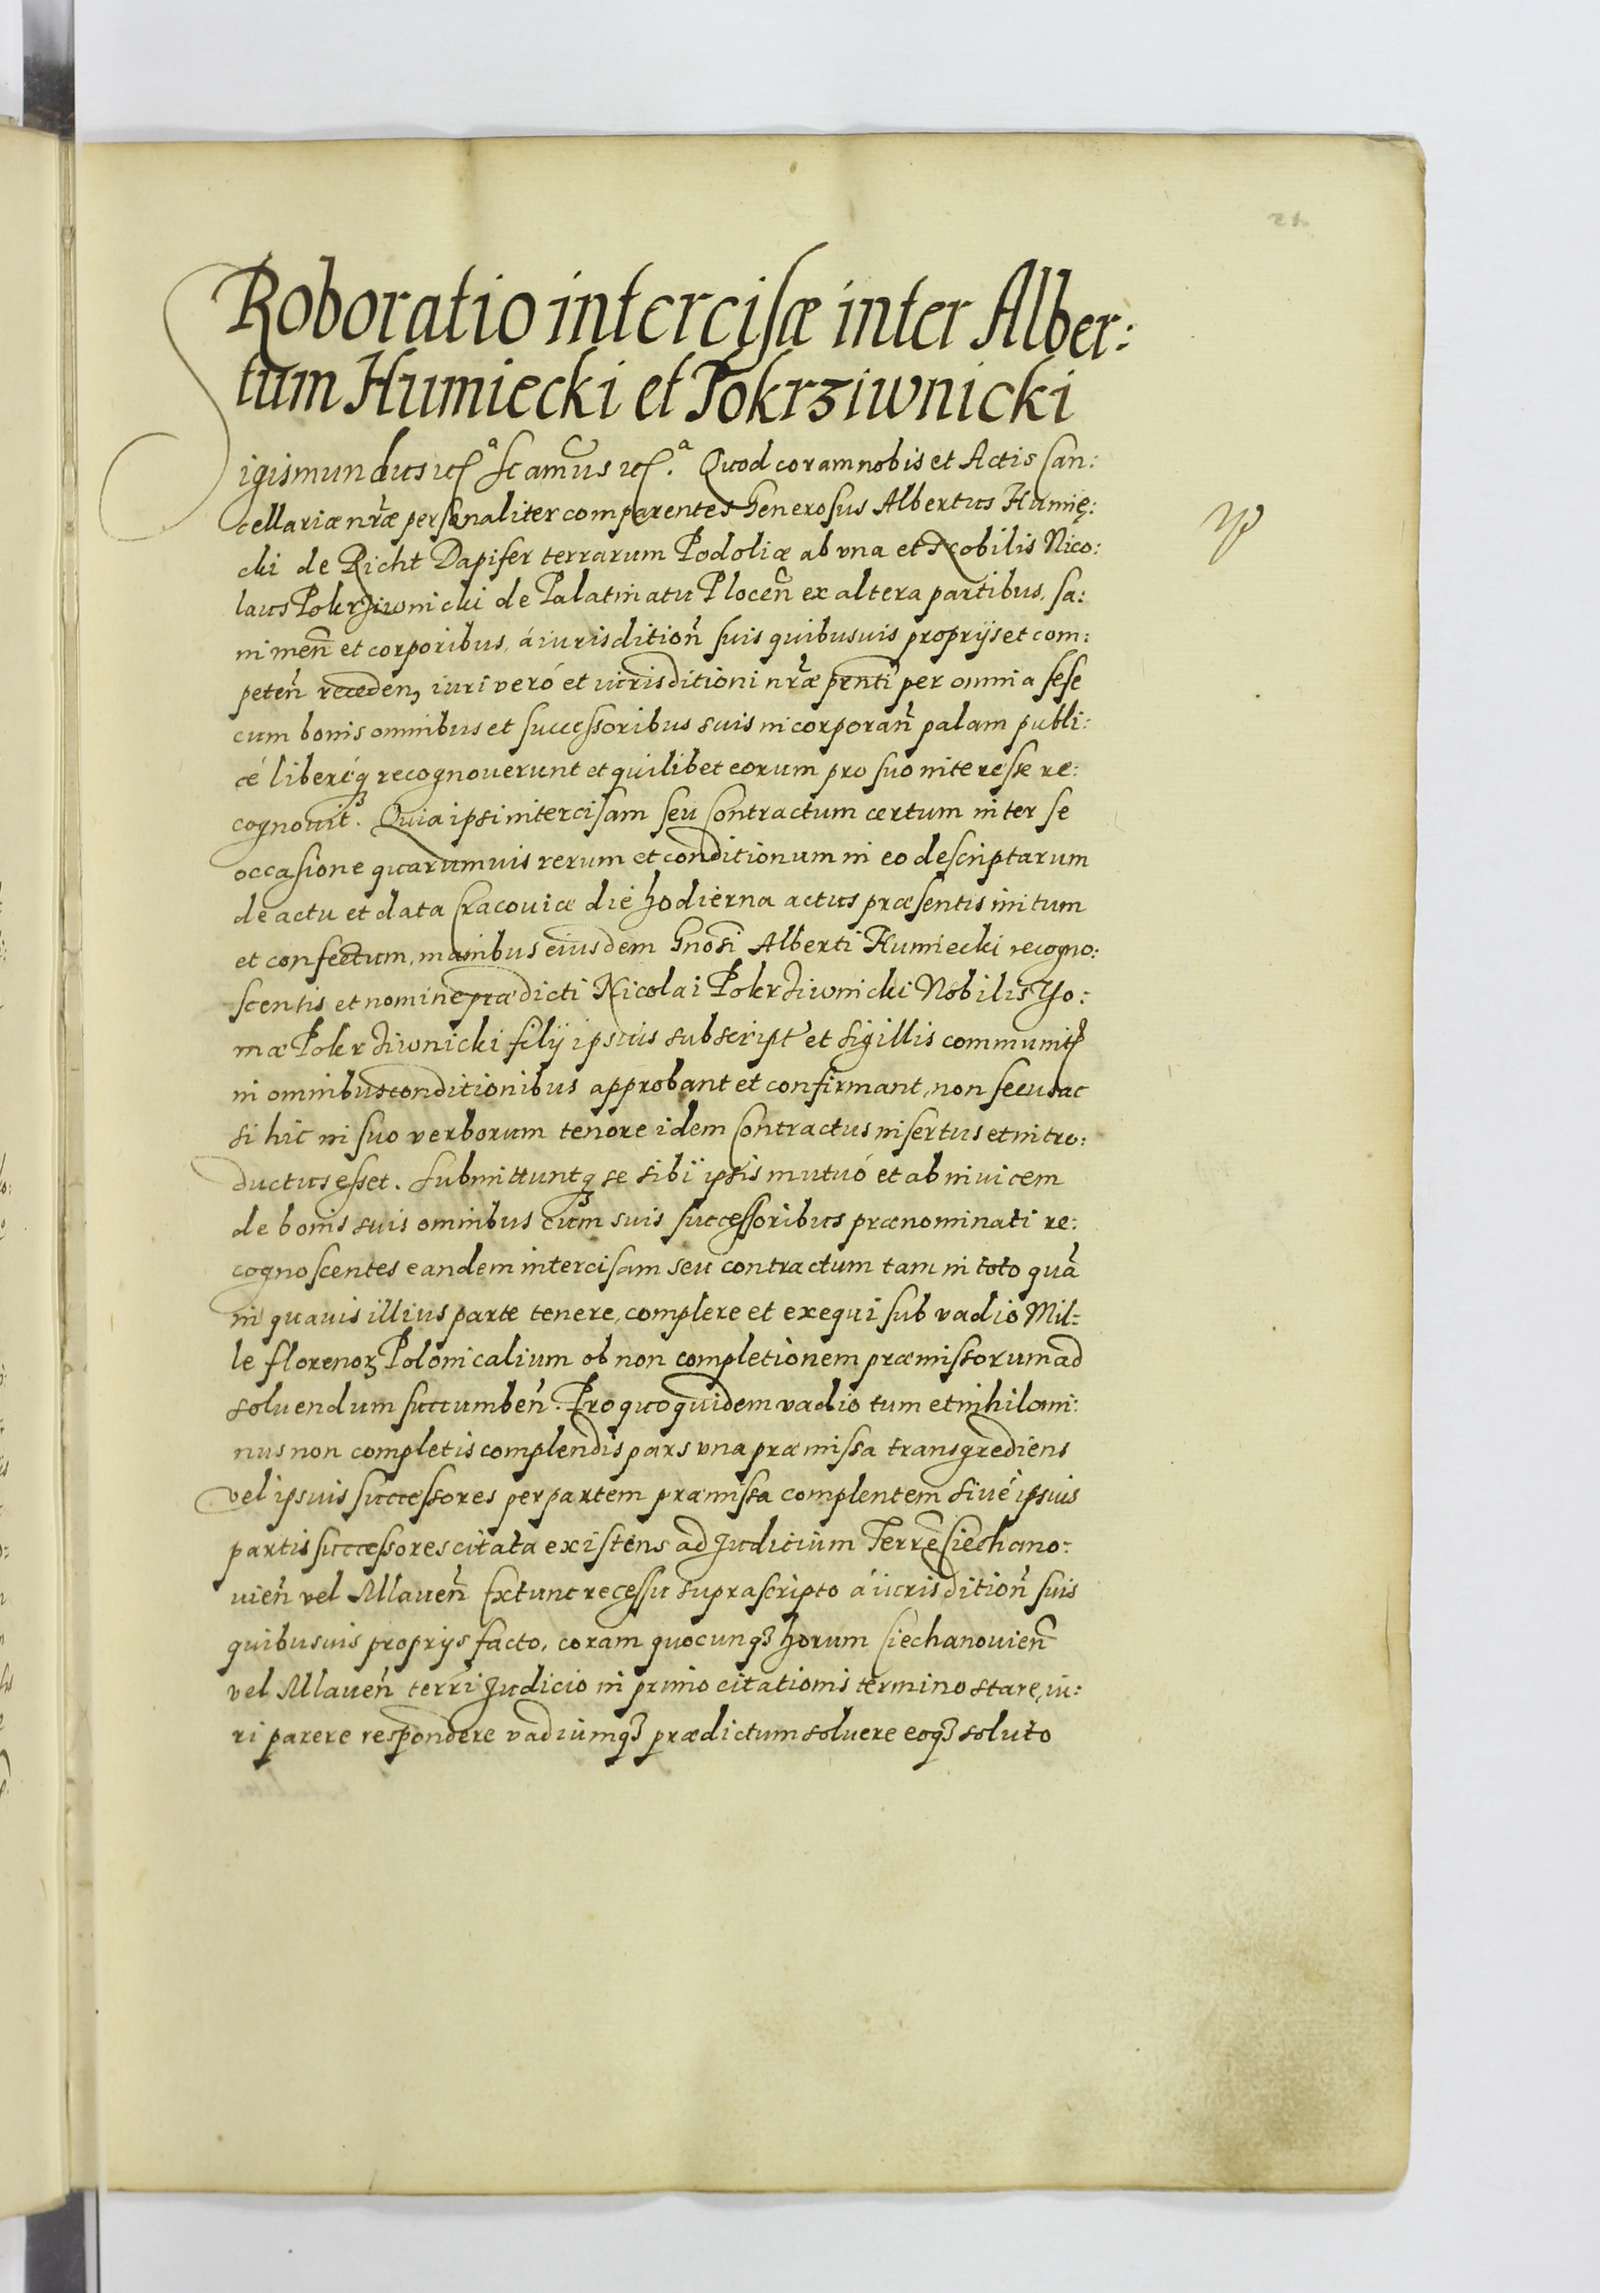 Roboratio intercisæ inter Alber:
tum Humiecki et Pokrziwnicki
Sigismundus etc.a Sc amus etc.a Quod coram nobis et Actis Can:
cellariæ nræ personaliter comparentes Generosus Albertus Humię:
cki de Richt Dapifer terrarum Podoliæ ab vna et Nobilis Nico:
laus Pokrziwnicki de Palatinatu Plocen̄ ex altera partibus, sa:
ni men̄ et corporibus, á iurisdition̄ suis quibusuis proprijs et com:
peten̄ receden, iuri veró et iurisditioni nræ pnti per omnia sese
cum bonis omnibus et successoribus suis incorporan̄ palam publi:
cé liberéq recognouerunt et quilibet eorum pro suo interesse re:
cognouit. Quia ipsi intercisam seu Contractum certum inter se
occasione quarumuis rerum et conditionum in eo descriptarum
de actu et data Cracouiæ die hodierna actus præsentis initum
et confectum, manibus eiusdem Gnosi Alberti Humiecki recogno:
scentis et nomine prædicti Nicolai Pokrziwnicki Nobilis Tho:
mæ Pokrziwnicki filij ipsius subscript et sigillis communit
in omnibus conditionibus approbant et confirmant, non secus ac
si hic in suo verborum tenore idem Contractus insertus et intro:
ductus esset. Submittuntq se sibi ipsis mutuó et ab inuicem
de bonis suis omnibus cum suis successoribus prænominati re:
cognoscentes eandem intercisam seu contractum tam in toto quā
in quauis illius parte tenere, complere et exequi sub vadio Mil:
le florenoꝝ Polonicalium ob non completionem præmissorum ad
soluendum succumben̄. Pro quo quidem vadio tum et nihilomi:
nus non completis complendis pars vna præmissa transgrediens
vel ipsius successores per partem præmissa complentem siué ipsius
partis successores citata existens ad Judicium Terrē Ciechano:
uien̄ vel Mlauen̄ Extunc recessu suprascripto á iurisdition̄ suis
quibusuis proprijs facto, coram quocunqꝫ horum Ciechanouien̄
vel Mlauen̄ terrī Judicio in primo citationis termino stare, iu:
ri parere respondere vadiumqꝫ prædictum soluere eoqꝫ soluto